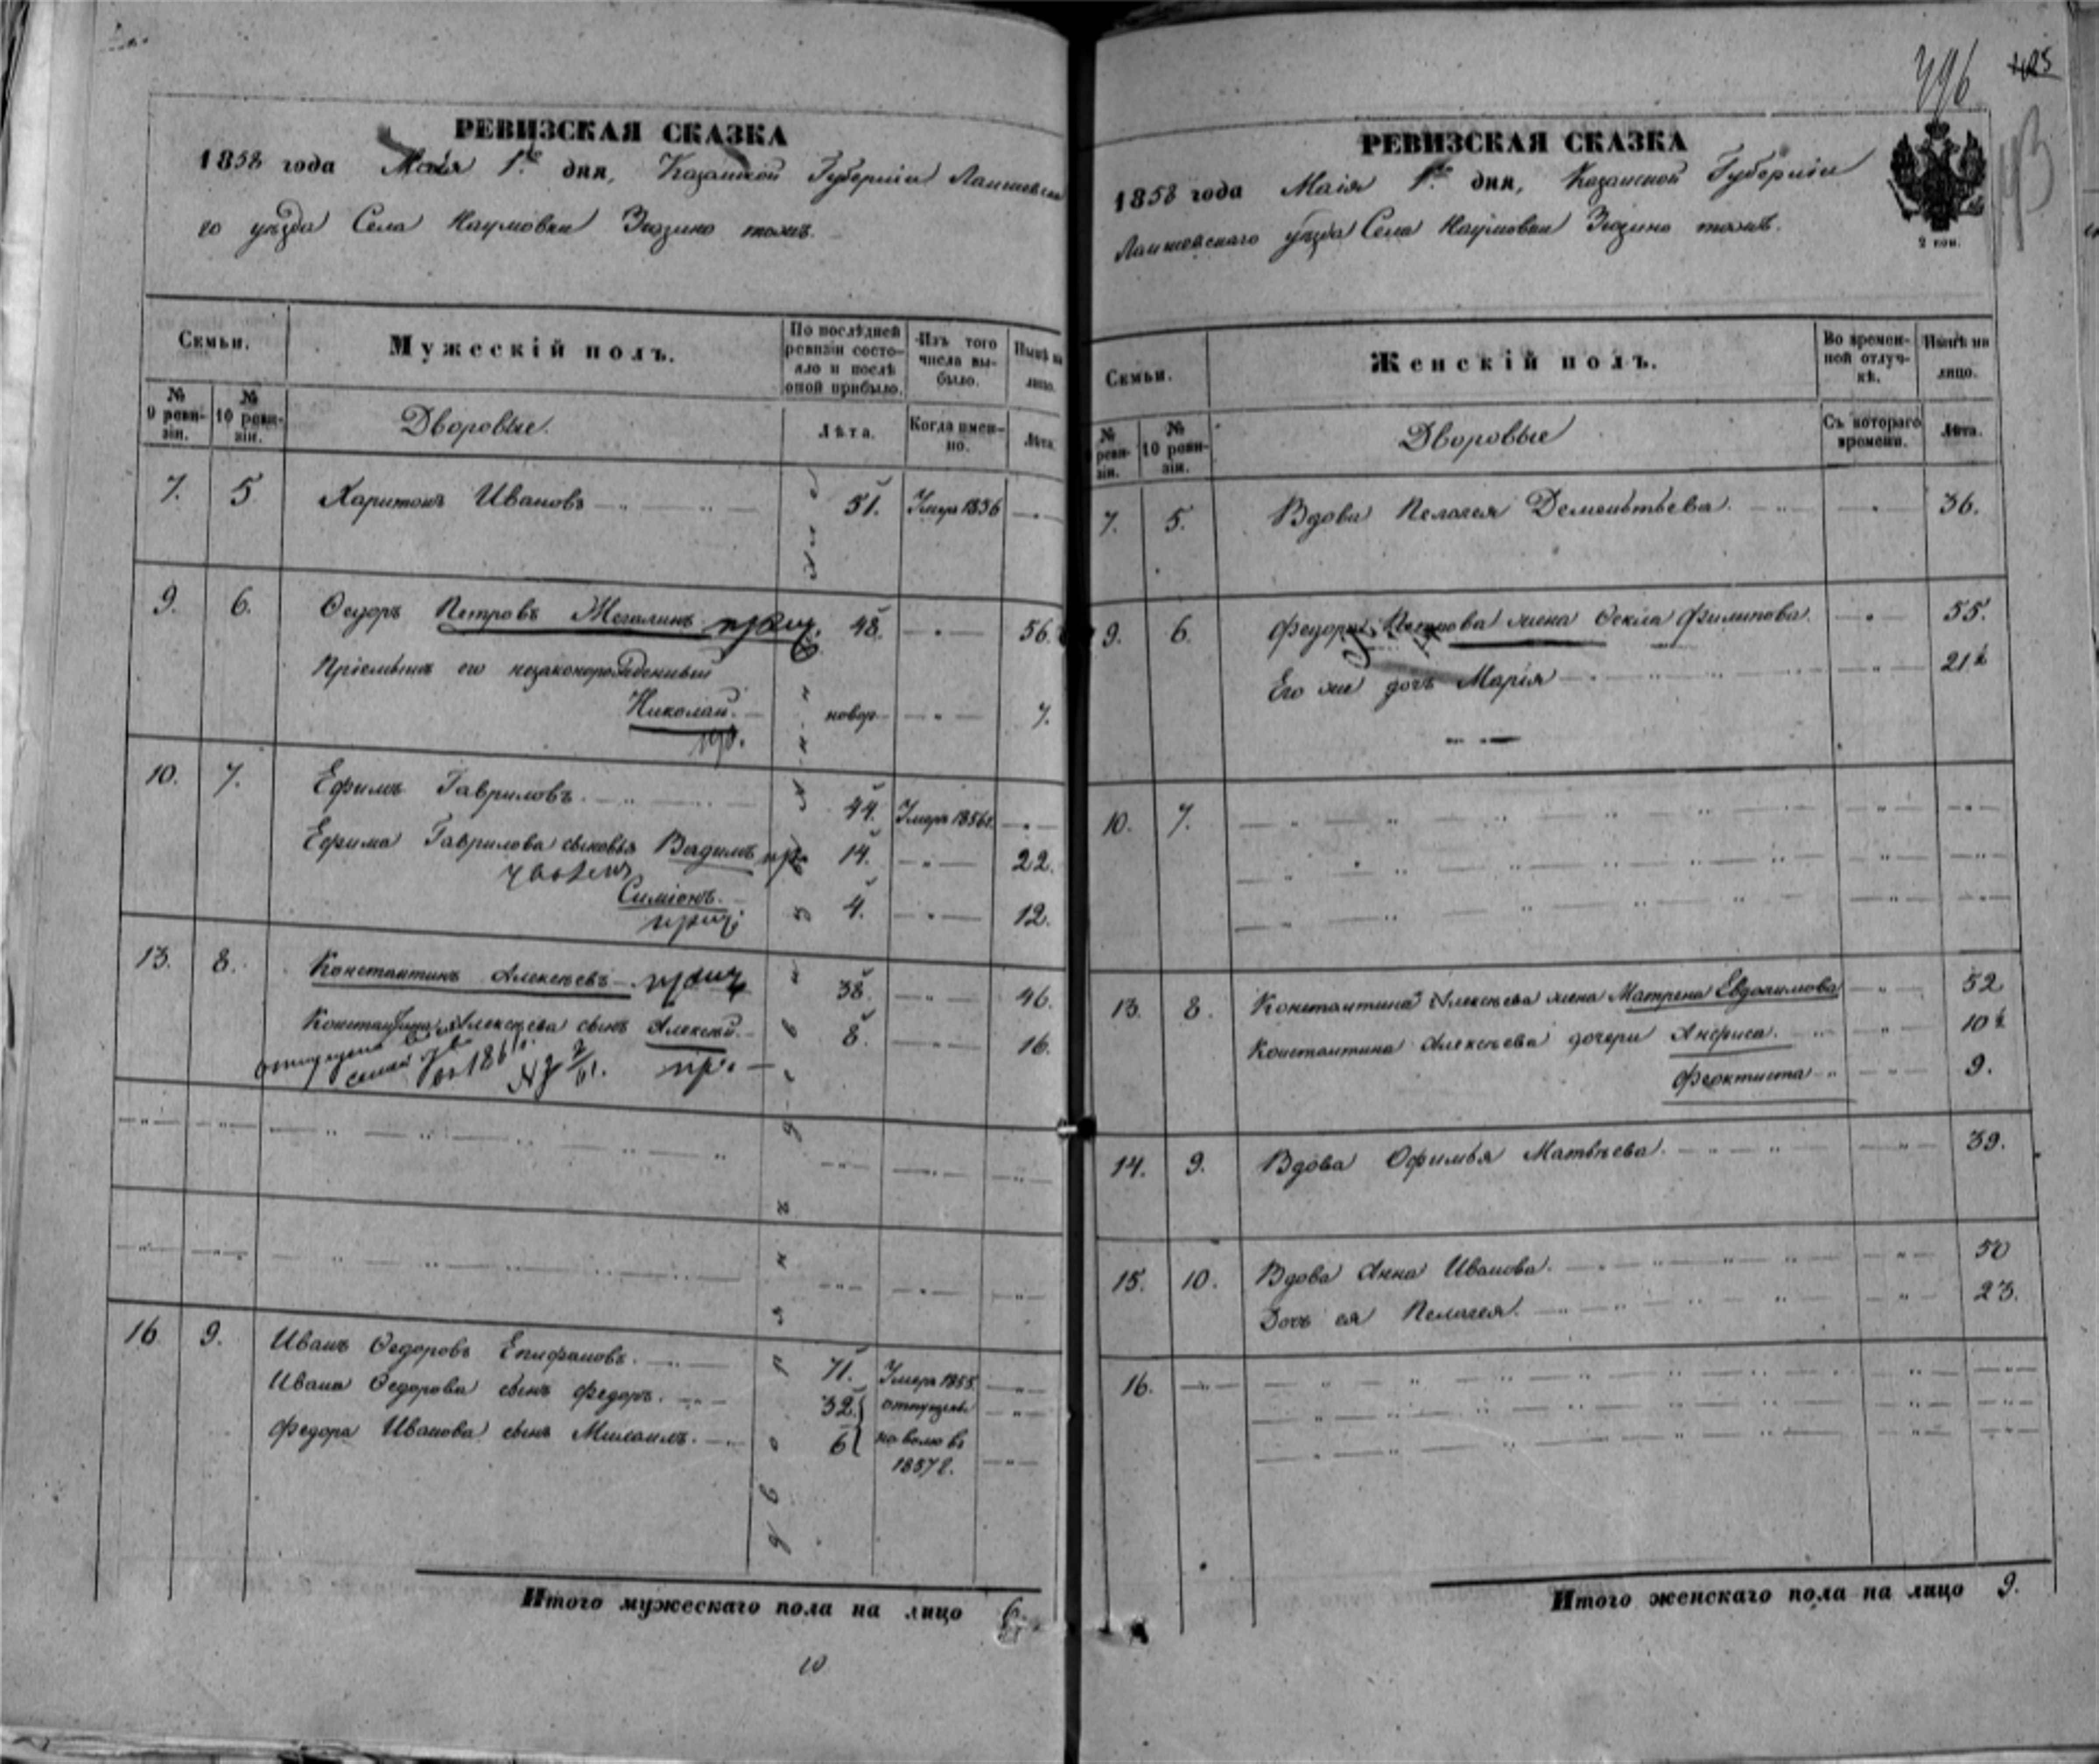 РЕВИЗСКАЯ СКАЗКА
1858 года Маія 1го дня, Казанской Губерніи Лаишевска
го уѣзда Села Наумовки Зюзино тожъ.
Семьи.
Мужескій полъ.
По послѣдней ревизіи состояло и послѣ оной прибыло.
Изъ того числа выбыло.
Нынѣ на лицо.
№ 9 ревизіи.
№ 10 ревизіи.
Дворовые.
Лѣта.
Когда именно.
Лѣта.
7. 5 Харитонъ Ивановъ 51. Умеръ 1856
9. 6. Ѳедоръ Петровъ 48. 56.
Пріемышъ его незаконорожденный
Николай. новор. 7.
10. 7. Ефимъ Гавриловъ. 44. Умеръ 1856г.
Ефима Гаврилова сыновья 14. 22.
Симіонъ. 4. 12.
13. 8. Константинъ Алексѣевъ 38. 46.
Константина Алексѣева сынъ Алексѣй. 8. 16.
16 9. Иванъ Ѳедоровъ Епифановъ. 71. Умеръ 1855.
Ивана Ѳедорова сынъ Федоръ. 32. отпущены
Федора Иванова сынъ Михаилъ. 6 на волю въ
1857 г.
Итого мужескаго пола на лицо 6.
10
496
РЕВИЗСКАЯ СКАЗКА
1858 года Маія 1го дня, Казанской Губерніи
Лаишевскаго уѣзда Села Наумовки Зюзино тожъ.
2 коп.
Семьи.
Женскій полъ.
Во временной отлучкѣ.
Нынѣ на лицо.
№ ревизіи.
№ 10 ревизіи.
Дворовые
Съ котораго времени.
Лѣта.
7. 5. Вдова Пелагея Дементьева. 36.
9. 6. Федора Петрова жена Ѳекла Филипова. 55.
Его же дочь Марія 21½
10. 7.
13. 8. Константина Алексѣева жена Матрена Евдокимова 52
Константина Алексѣева дочери Анфиса. 10½
Феоктиста 9.
14. 9. Вдова Офимья Матвѣева. 39.
15. 10. Вдова Анна Иванова. 50
Дочь ея Пелагея. 23.
16.
Итого женскаго пола на лицо 9.